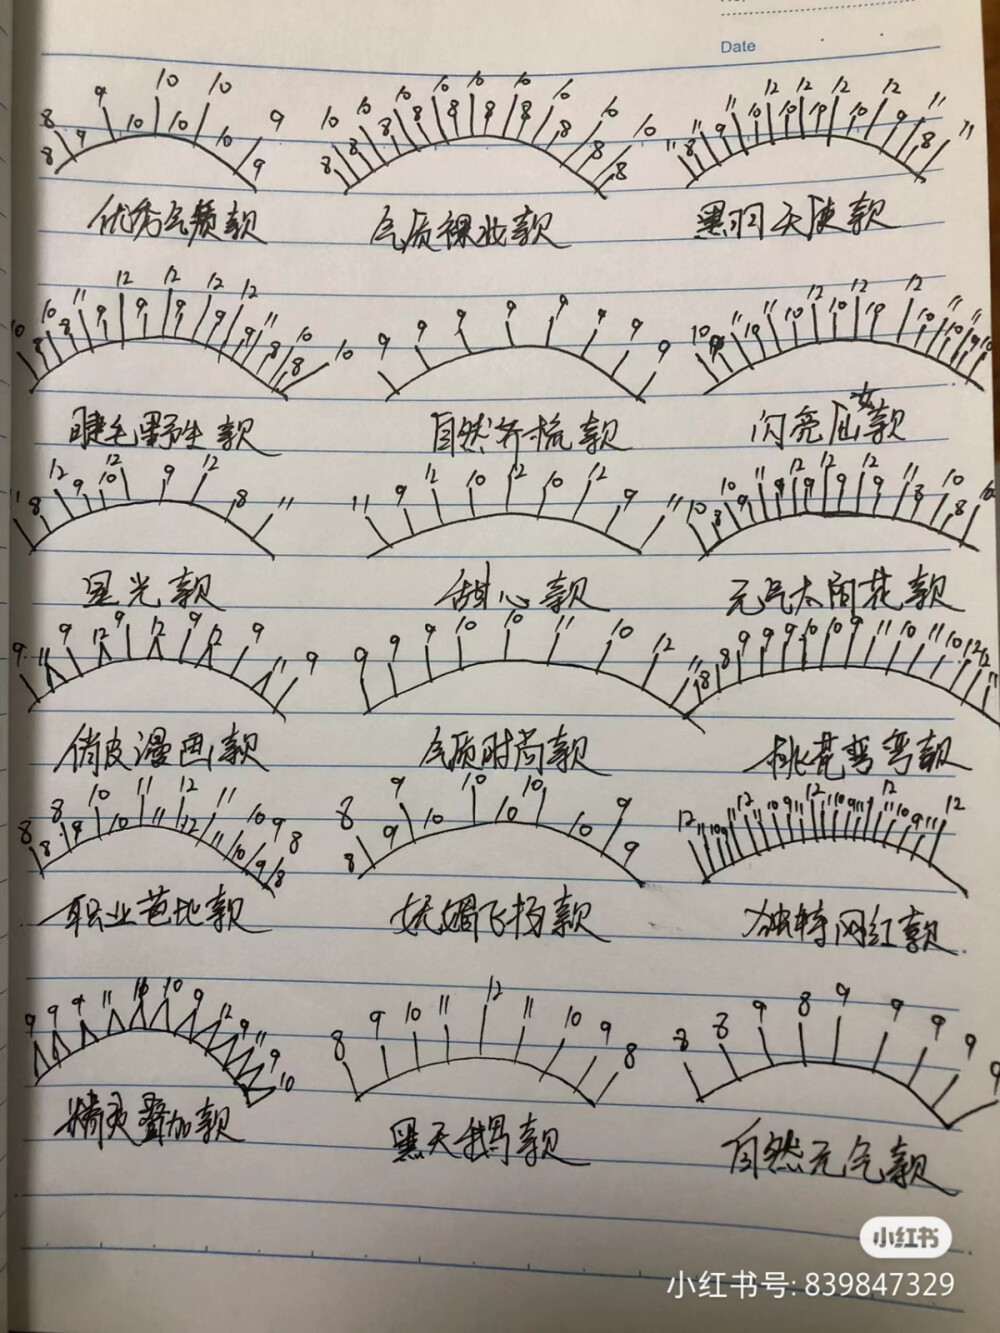 Date
8 8 9 9 10 10 10 10 10 9 9
10 8 10 8 10 8 10 8 10 8 10 9 10 8 10 8 10 8 10 8
11 8 11 9 12 10 12 10 12 9 12 10 12 9 11 8 11
优秀气质款 气质裸妆款 黑羽天使款
10 8 10 8 11 9 12 9 12 9 12 9 12 9 11 8 10 8 10
9 9 9 9 9 9 9 9
10 9 11 10 11 10 12 10 12 10 12 10 11 10 11 9 10
睫毛野生款 自然齐梳款 闪亮仙女款
11 8 12 9 10 12 9 12 8 11
11 9 12 10 12 10 12 9 11
10 8 10 9 11 9 12 9 12 9 12 9 11 8 10 8 10
星光款 甜心款 元气太阳花款
9 11 9 12 9 12 9 12 9 11 9
9 9 9 10 10 11 10 12 11
8 8 9 9 9 10 10 9 11 10 11 10 12 12 11
俏皮漫画款 气质时尚款 桃花弯弯款
8 8 8 9 10 10 11 11 12 12 11 11 10 10 9 9 8 8
8 8 9 9 10 10 10 10 10 9 9
12 11 10 9 11 12 11 10 9 11 12 11 10 9 11 11 12 11 10 9 11 12
职业芭比款 妩媚飞扬款 独特网红款
9 9 9 11 11 10 9 12 9 11 9 10
8 9 10 11 12 11 10 9 8
8 8 9 8 9 9 9 9 9
精灵叠加款 黑天鹅款 自然元气款
小红书
小红书号: 839847329